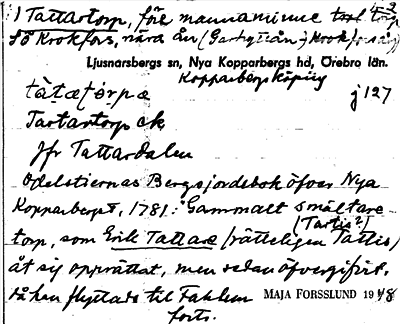 1 Tattartorp, före mannaminne torp
SÖ Krokfors, nära ån (Garhyttån = Krokforsån)
Ljusnarsbergs sn, Nya Kopparbergs hd, Örebro län.
Kopparbergs köping
j 127
Tartartorp ek
Jfr Tattardalen
Odelstiernas Bergsjordebok öfver Nya
Kopparberget, 1781: "Gammalt smältare
(Tartis?)
torp, som Erik Tattare (rätteligen Tattis)
åt sig opprättat, men sedan öfvergifvit,
då han flyttade til Fahlun
MAJA FORSSLUND 1948
forts.